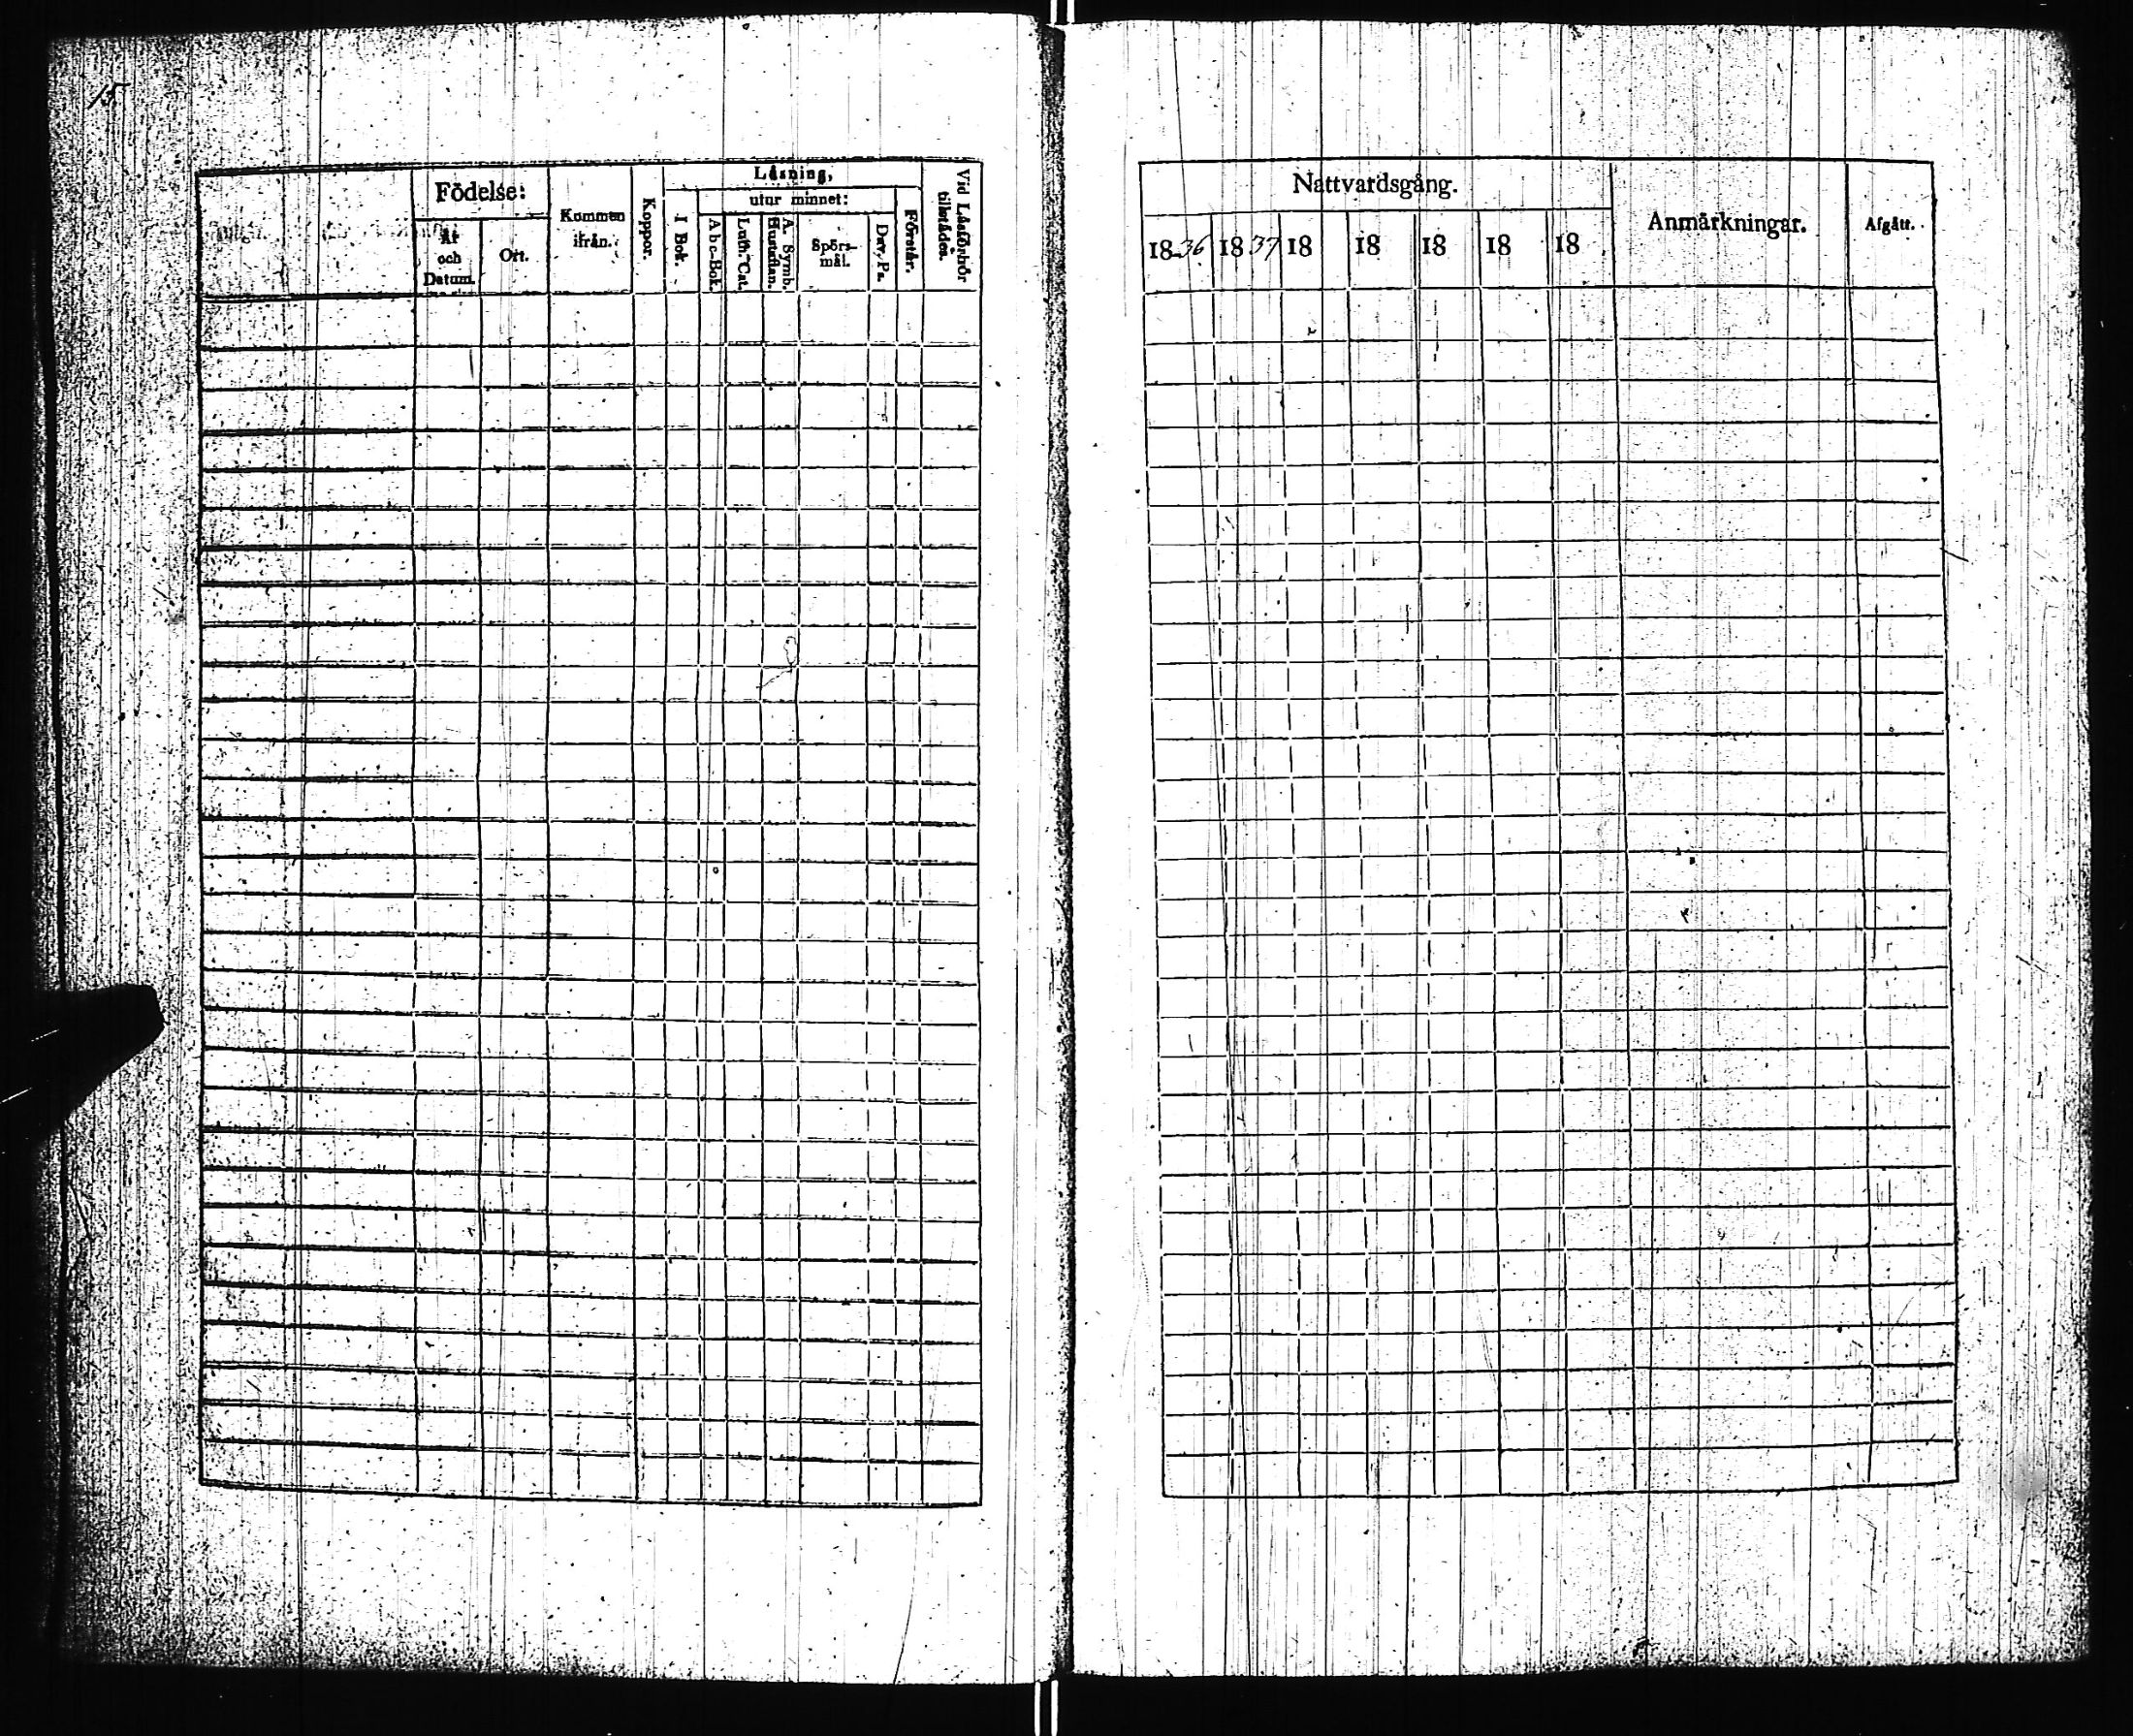 15
Födelse:
År och Datum.
Ort.
Kommen ifrån.
Koppor.
Läsning,
I Bok.
utur minnet:
Abc-Bok.
Luth. Cat.
A. Symb. Hustaflan.
Spörs-
mål.
Dav. Ps.
Förstår.
Vid Läsförhör tillstädes.
Nattvardsgång.
1836 1837 18 18 18 18 18
Anmärkningar.
Afgått.